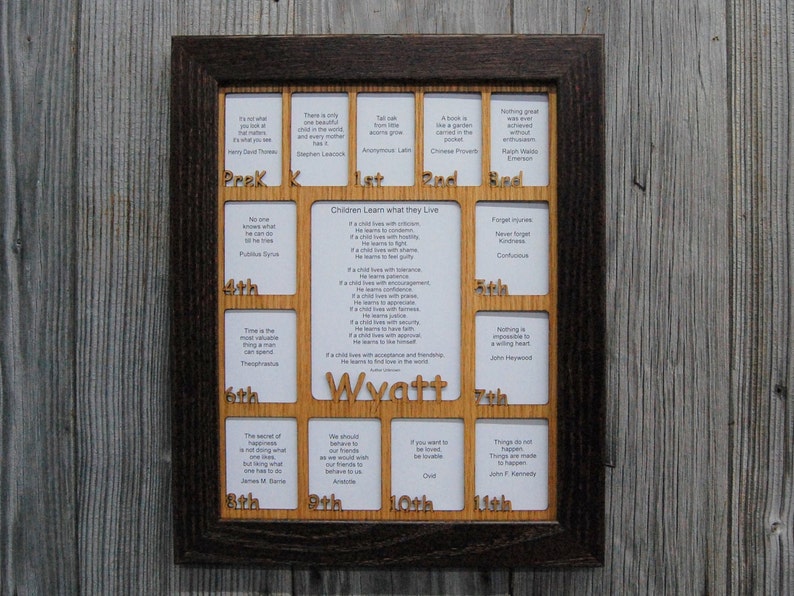 It's not what
you look at
that matters,
it's what you see.
Henry David Thoreau
PreK
There is only
one beautiful
child in the world,
and every mother
has it.
Stephen Leacock
K
Tall oak
from little
acorns grow.
Anonymous: Latin
1st
A book is
like a garden
carried in the
pocket.
Chinese Proverb
2nd
Nothing great
was ever
achieved
without
enthusiasm.
Ralph Waldo
Emerson
3rd
No one
knows what
he can do
till he tries
Publilius Syrus
4th
Children Learn what they Live
If a child lives with criticism,
He learns to condemn.
If a child lives with hostility,
He learns to fight.
If a child lives with shame.
He learns to feel guilty.
If a child lives with tolerance,
He learns patience.
If a child lives with encouragement,
He learns confidence.
If a child lives with praise.
He learns to appreciate.
If a child lives with fairness.
He learns justice.
If a child lives with security,
He learns to have faith.
If a child lives with approval.
He learns to like himself.
If a child lives with acceptance and friendship,
He learns to find love in the world.
Author Unknown
Wyatt
Forget injuries:
Never forget
Kindness.
Confucious
5th
Time is the
most valuable
thing a man
can spend.
Theophrastus
6th
Nothing is
impossible to
a willing heart.
John Heywood
7th
The secret of
happiness
is not doing what
one likes,
but liking what
one has to do
James M. Barrie
8th
We should
behave to
our friends
as we would wish
our friends to
behave to us.
Aristotle
9th
If you want to
be loved,
be lovable.
Ovid
10th
Things do not
happen.
Things are made
to happen
John F. Kennedy
11th